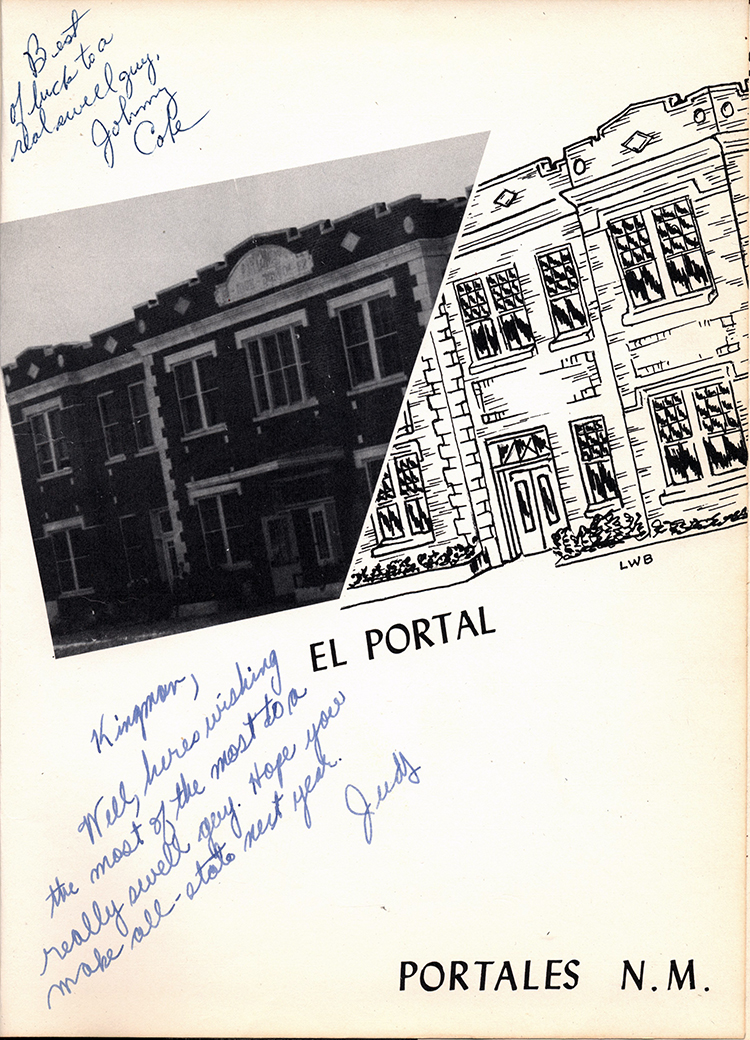 of Best
of luck to a
real swell guy.
Johnny
Cope
LWB
EL PORTAL
Kingman,
Well, heres wishing
the most of the most to a
really swell guy. Hope you
make all-state next year.
Judy
PORTALES N.M.